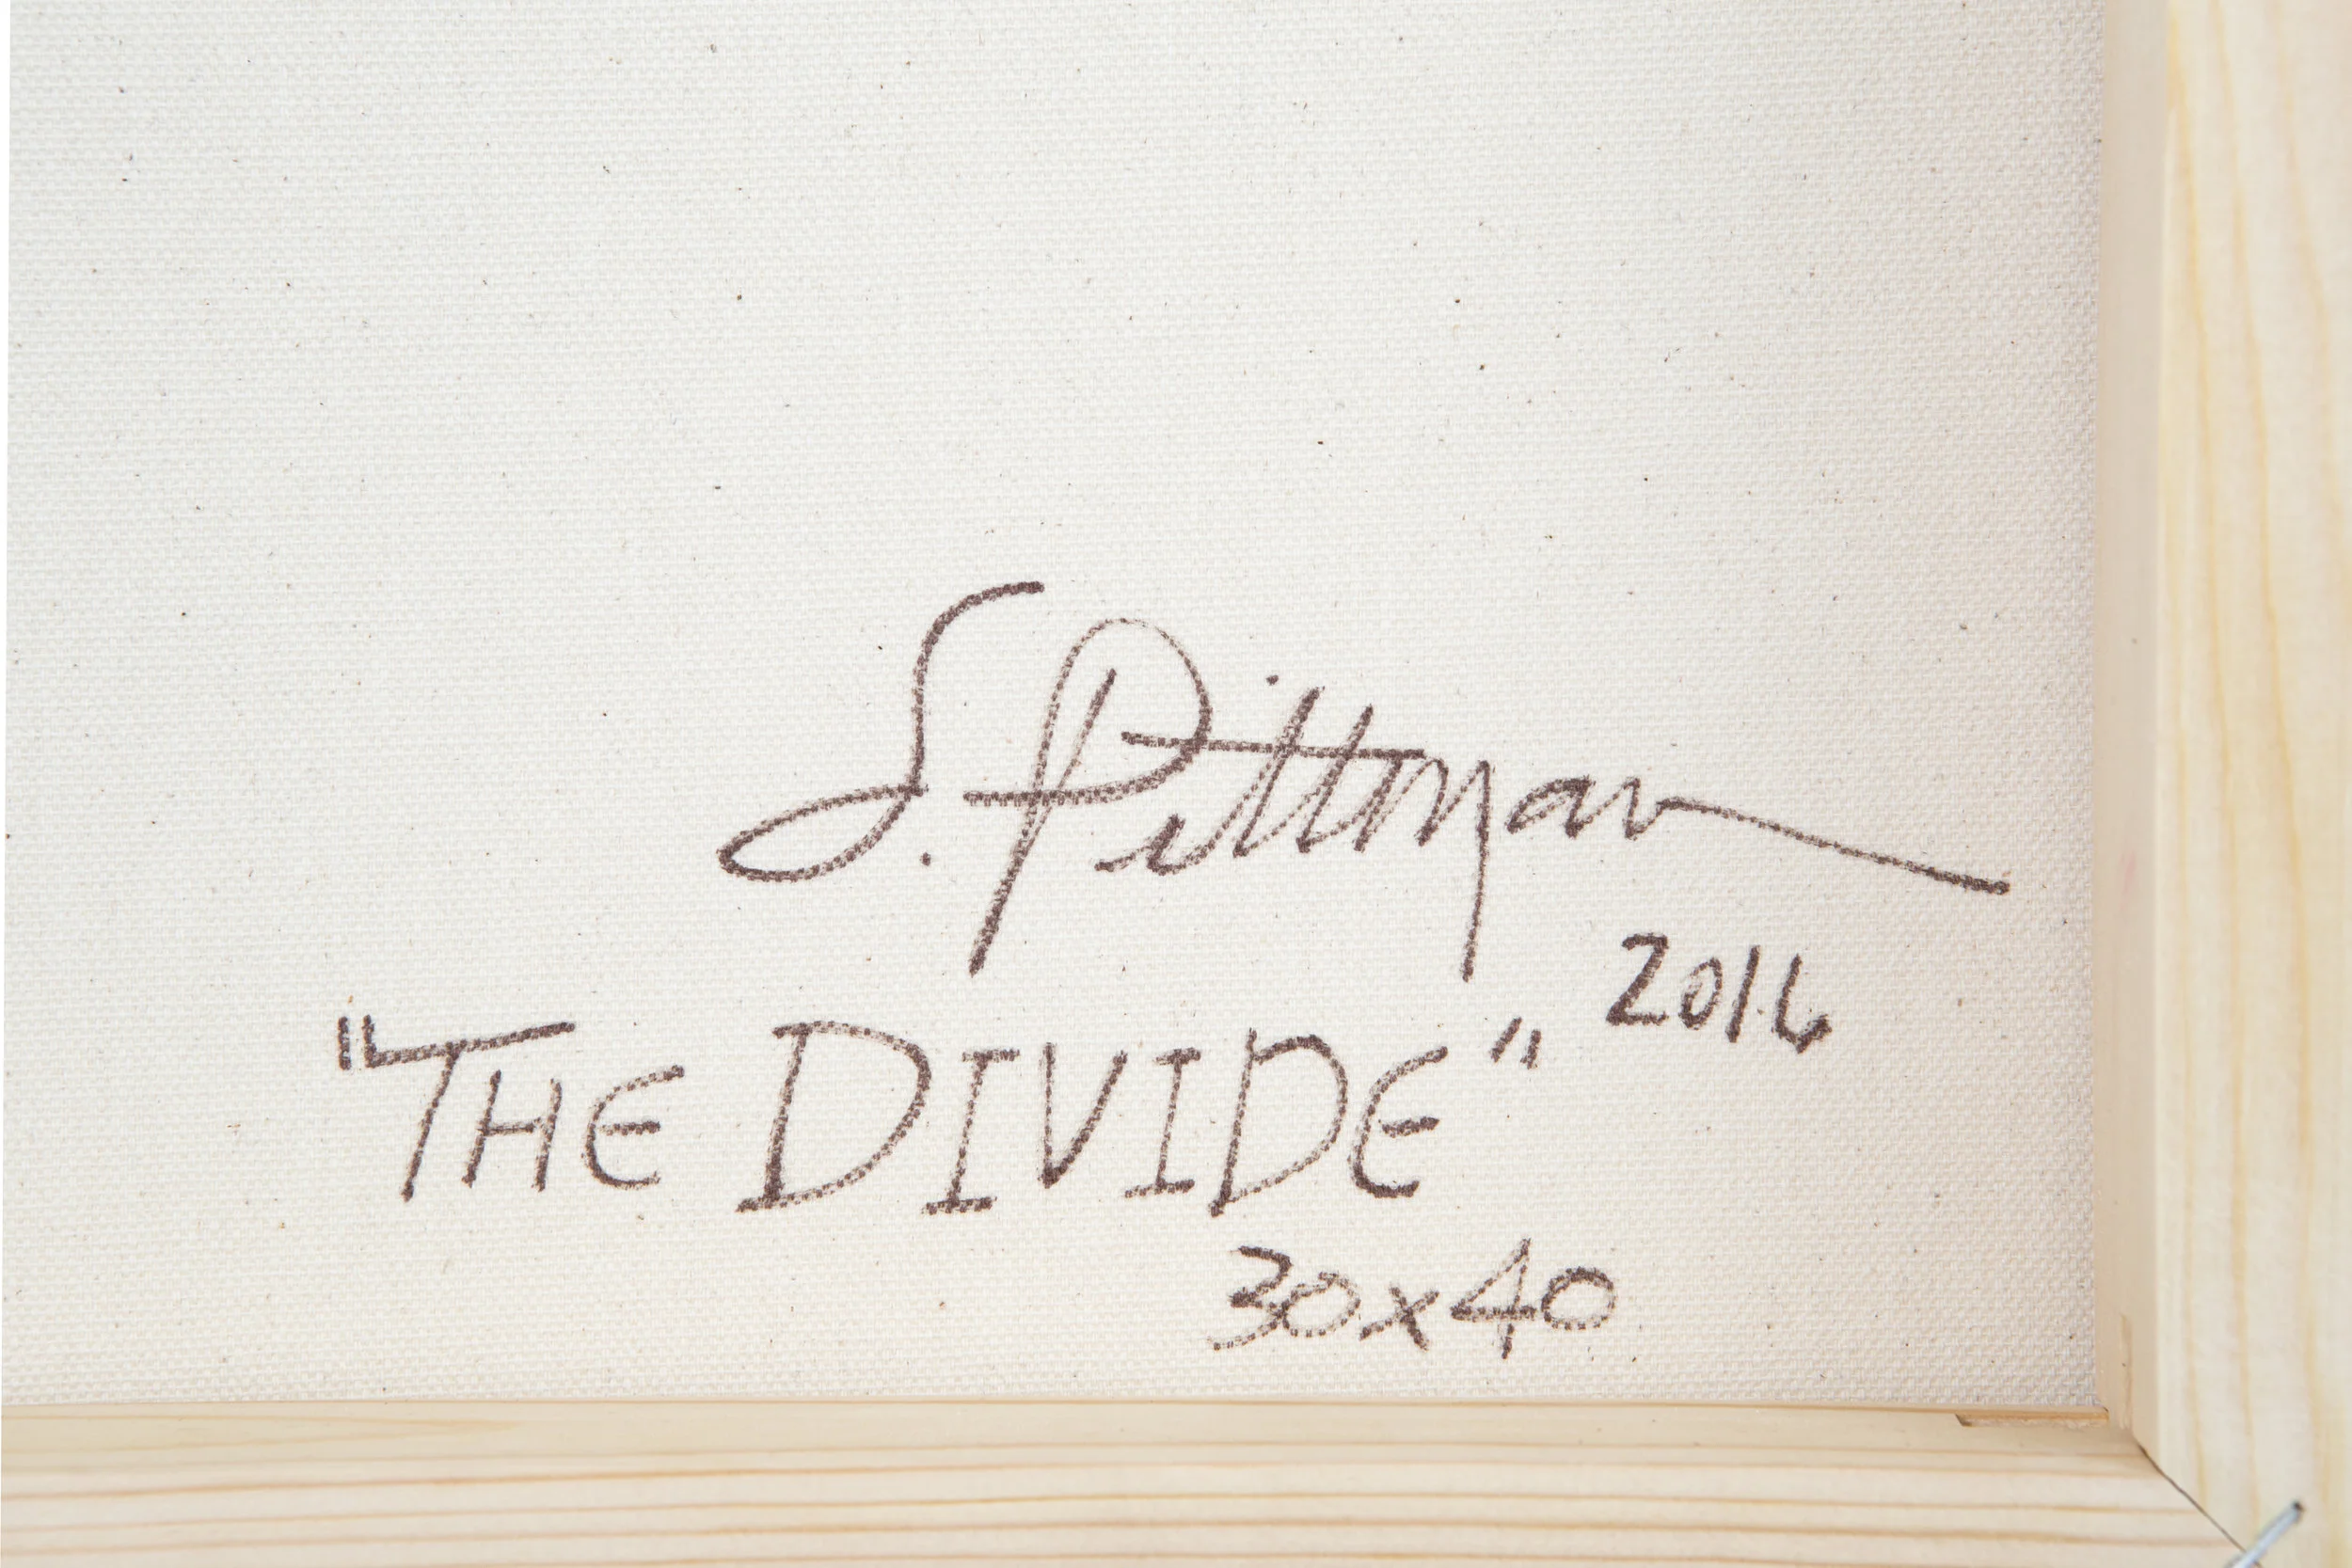 S. Pittman
2016
"THE DIVIDE"
30x40